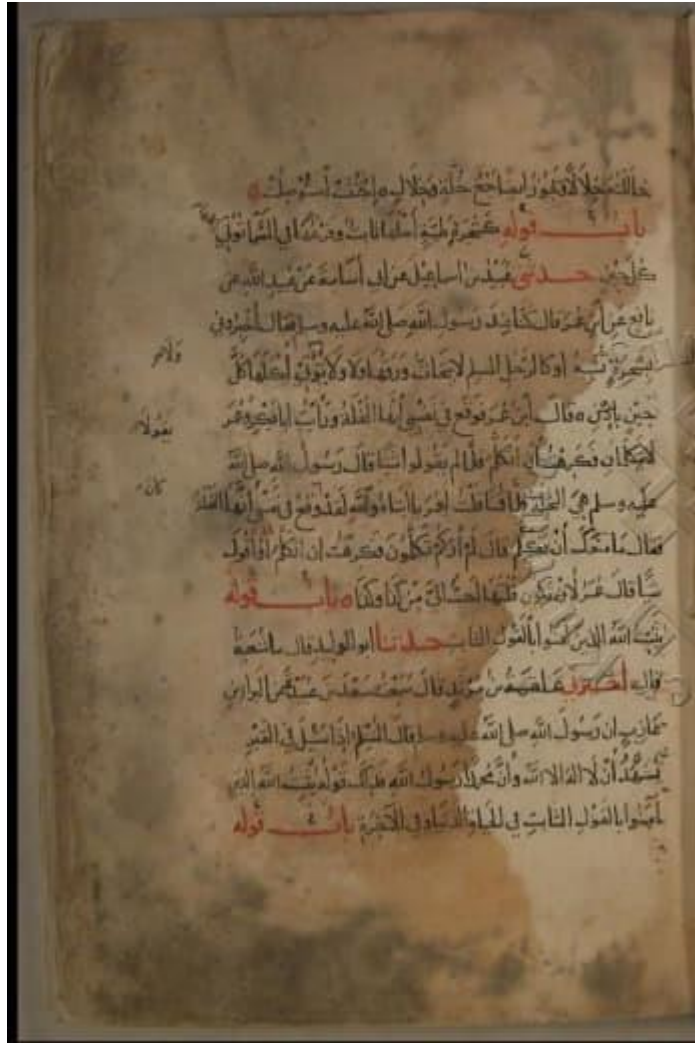 خاللته خلالا ويجوز ايضا جمع خلة وخلال اجتثت استوصلت
باب قوله كشجرة طيبة أصلها ثابت وفرعها في السما تؤتي
كل حين حدثني عبيد بن اسماعيل عن أبي أسامة عن عبيد الله عن
نافع عن ابن عمر قال كنا عند رسول الله صلى الله عليه وسلم فقال أخبروني
بشجرة تشبه او كالرجل المسلم لا يتحات ورقها ولا ولا تؤتي أكلها كل
حين باذن قال ابن عمر فوقع في نفسي أنها النخلة ورأيت ابا بكر وعمر
لا يتكلمان فكرهت أن أتكلم فلما لم يقولوا شيا قال رسول الله صلى الله
عليه وسلم هي النخلة فلما قمنا قلت لعمر يا ابتاه والله لقد وقع في نفسي أنها النخلة
فقال ما منعك أن تكلم قال لم أركم تكلمون فكرهت ان اتكلم أو أقول
شيا قال عمر لأن تكون قلتها أحب الي من كذا وكذا باب قوله
يثبت الله الذين آمنوا بالقول الثابت حدثنا ابو الوليد قال شعبة
قال أخبرني علقمة بن مرثد قال سمعت سعد بن عبيدة عن البرا بن
عازب ان رسول الله صلى الله عليه وسلم قال المسلم إذا سئل في القبر
يشهد أن لا اله الا الله وأن محمدا رسول الله فذلك قوله يثبت الله الذين
آمنوا بالقول الثابت في الحياة الدنيا وفي الآخرة باب قوله
ولا
يقولا
كان